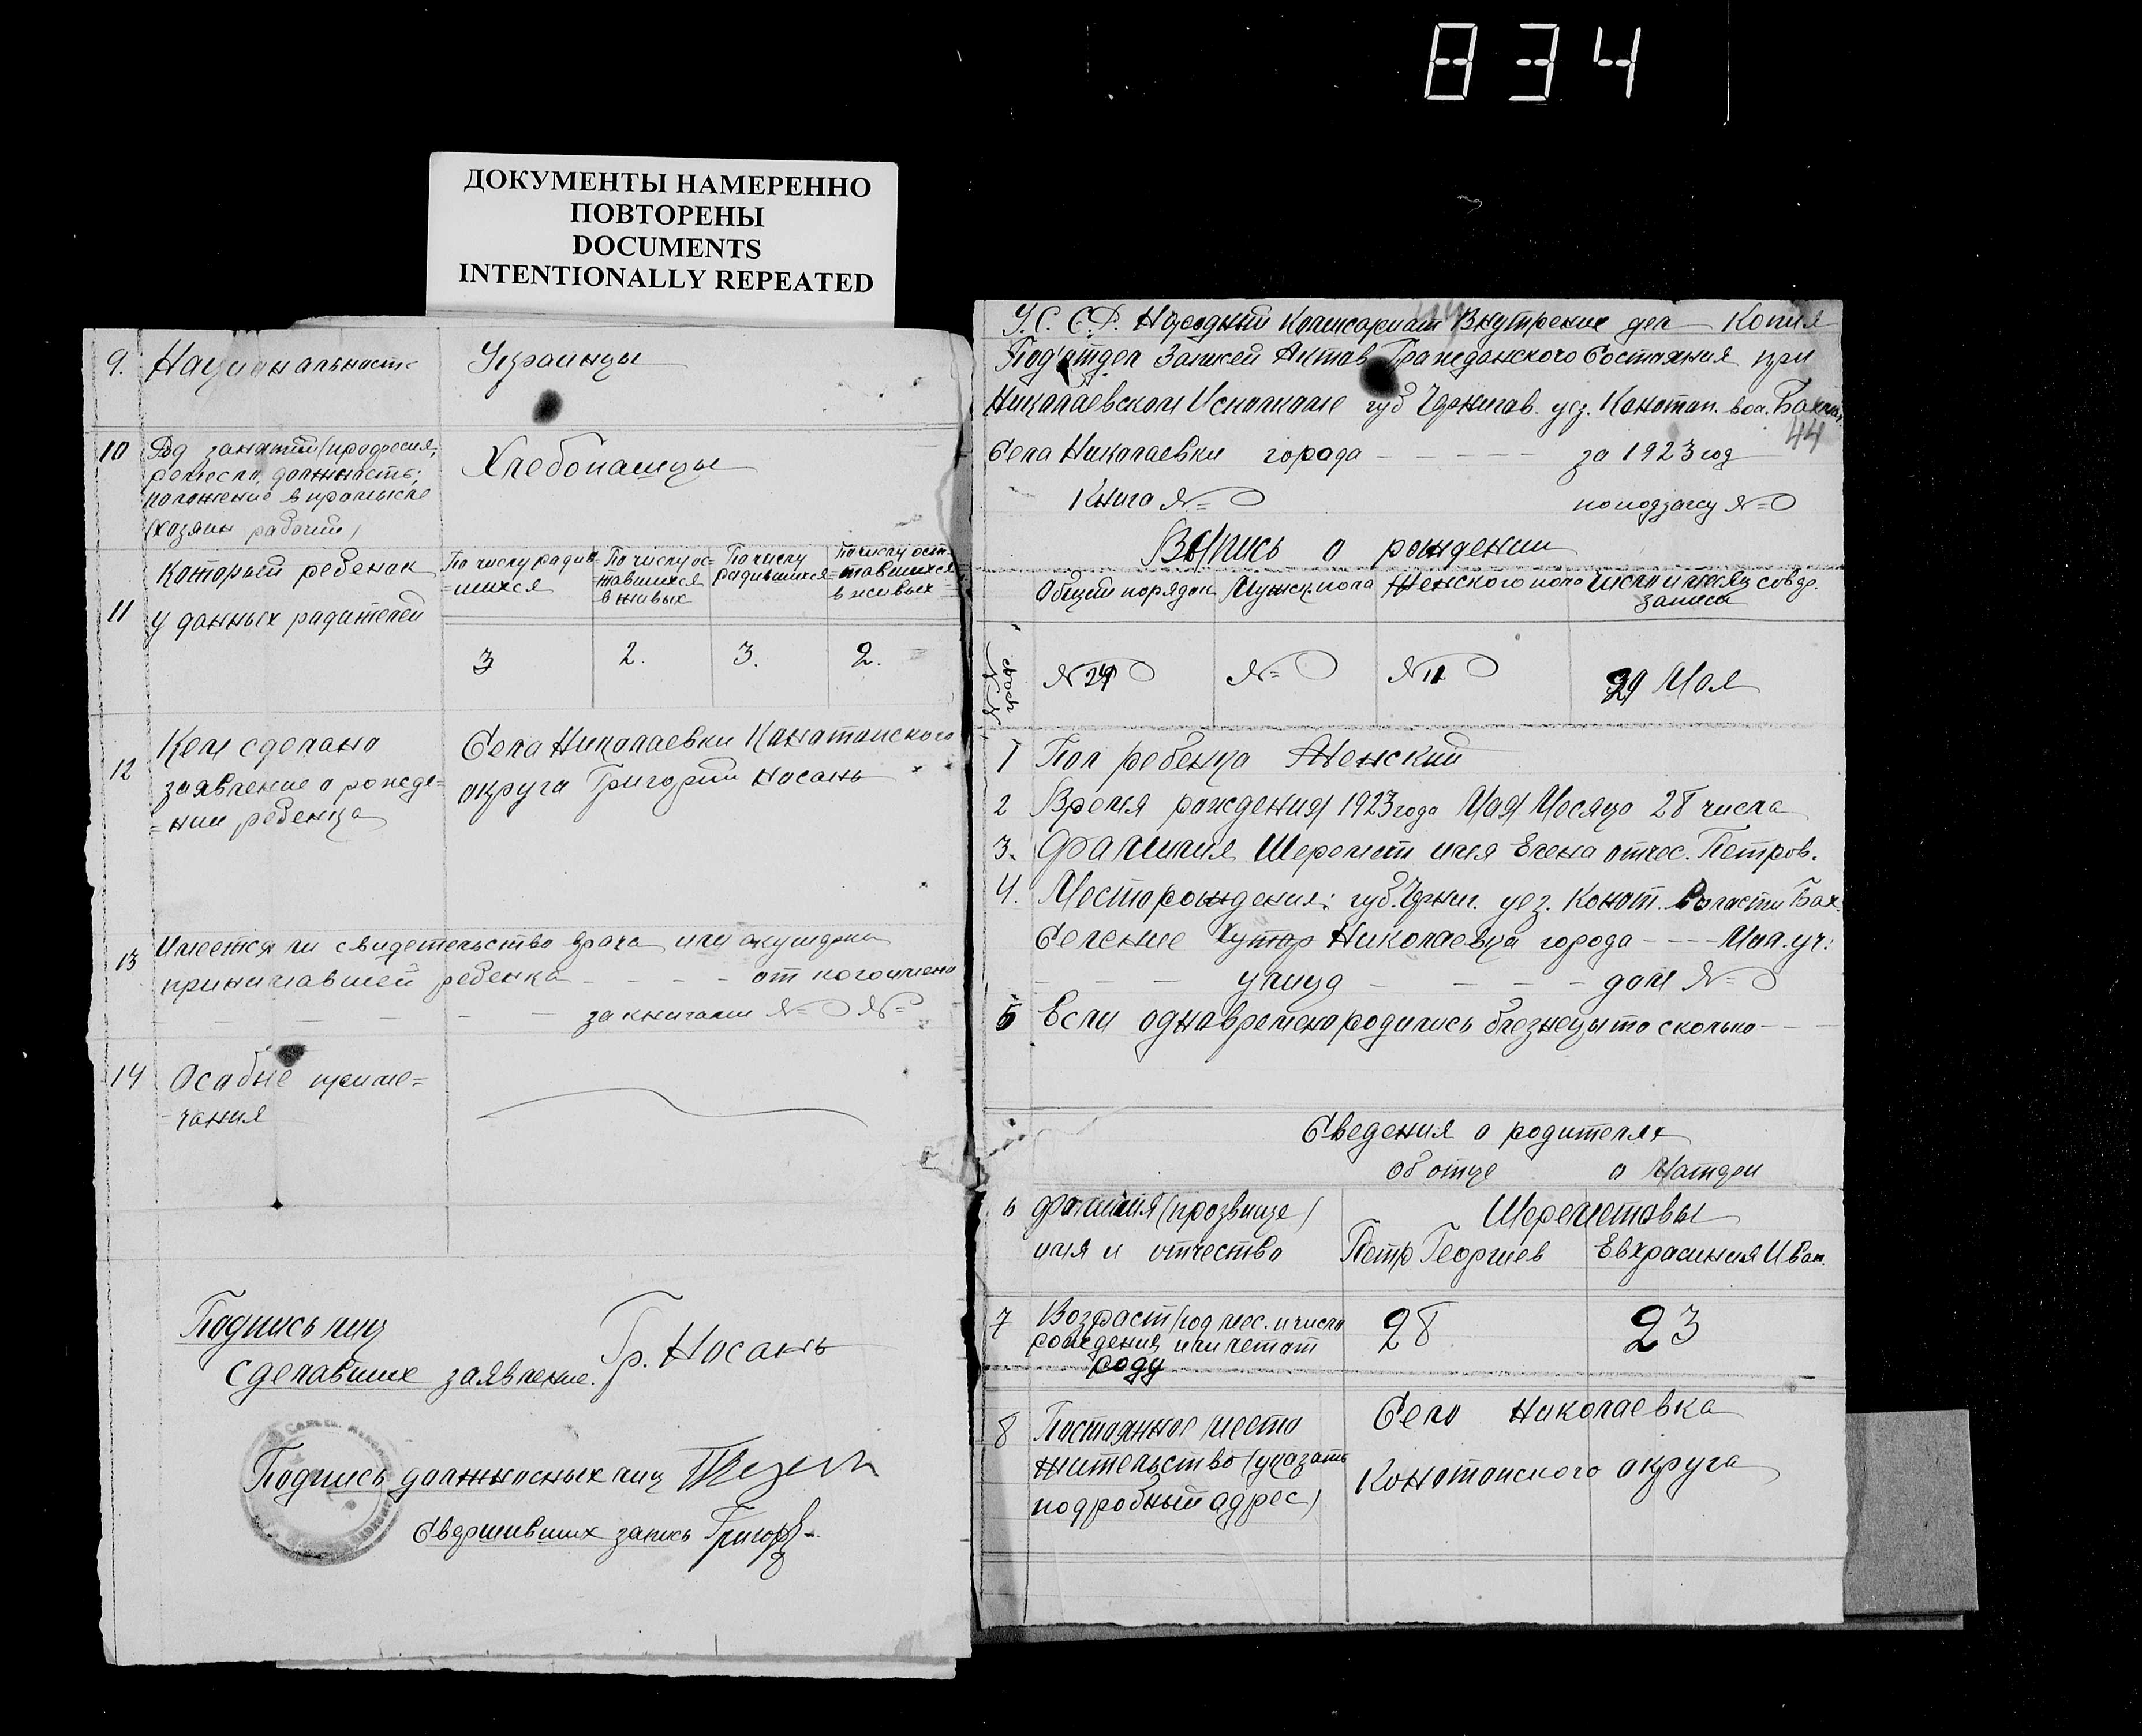 834
ДОКУМЕНТЫ НАМЕРЕННО
ПОВТОРЕНЫ
DOCUMENTS
INTENTIONALLY REPEATED
9. Национальность Украинцы
10 Род занятий (професия,
ремесло, должность;
положение в промысле
(хозяин рабочий)
Хлебопашцы
11 который ребенак
у данных радителей
По числу радив=
=шихся
По числу ос=
тавшихся
в живых
По числу
радившихся
По числу ост=
тавшихся
в живых
3 2. 3. 2.
12 Кем сделано
заявление о рожде=
=нии ребенка
Села Николаевки Канатопского
округа Григорий Носань
13 Имеется ли свидетельство врача или акушерки
принимавшей ребенка - - - - от кого имено
- - - - - за книгами № №
14 Особые приме=
-чания
Подпись лиц
сделавших заявление. Гр. Носань
Подпись должносных лиц
Свершивших запись
У.С.С.Р. Народный Комисариат Внутрение дел Копия
Под'отдел Записей Актов Гражданского Состояния при
Николаевском Исполкоме губ Чернигов. уез. Конотоп. вол. Бахм.
44
Села Николаевки города - - - - - за 1923 год
Книга № №
Выпись о рождении
Общий порядок Мужск. пола Женского пола Число и месяц совер.
записи
№ 29 № № 11 29 Мая
1 Пол ребенка Женский
2 Время рождения 1923 года Мая Месяца 28 числа
3. Фамилия Шеремет имя Елена отчес. Петров.
4. Место рождения: губ. Черниг. уез. Конот. Волости Бах.
Селение Хутор Николаевка города - - - -
- - - улица - - - - дом №
5 Если одновремено родились близнецы то сколько - -
Сведения о родителях
об отце о Матери
6 фамилия (прозвище)
имя и отчество
Шереметовы
Петр Георгиев Евхрасиния Иван.
7 Возраст (год мес. и число
рождения или летот
роду
28 23
8 Постоянное место
жительство (указать
подробный адрес)
Село Николаевка
Конотопского округа